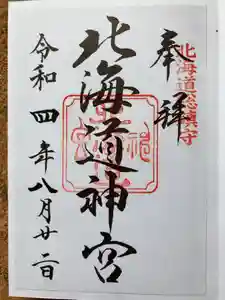 奉拝
北海道総鎮守
北海道神宮
令和四年八月廿二日